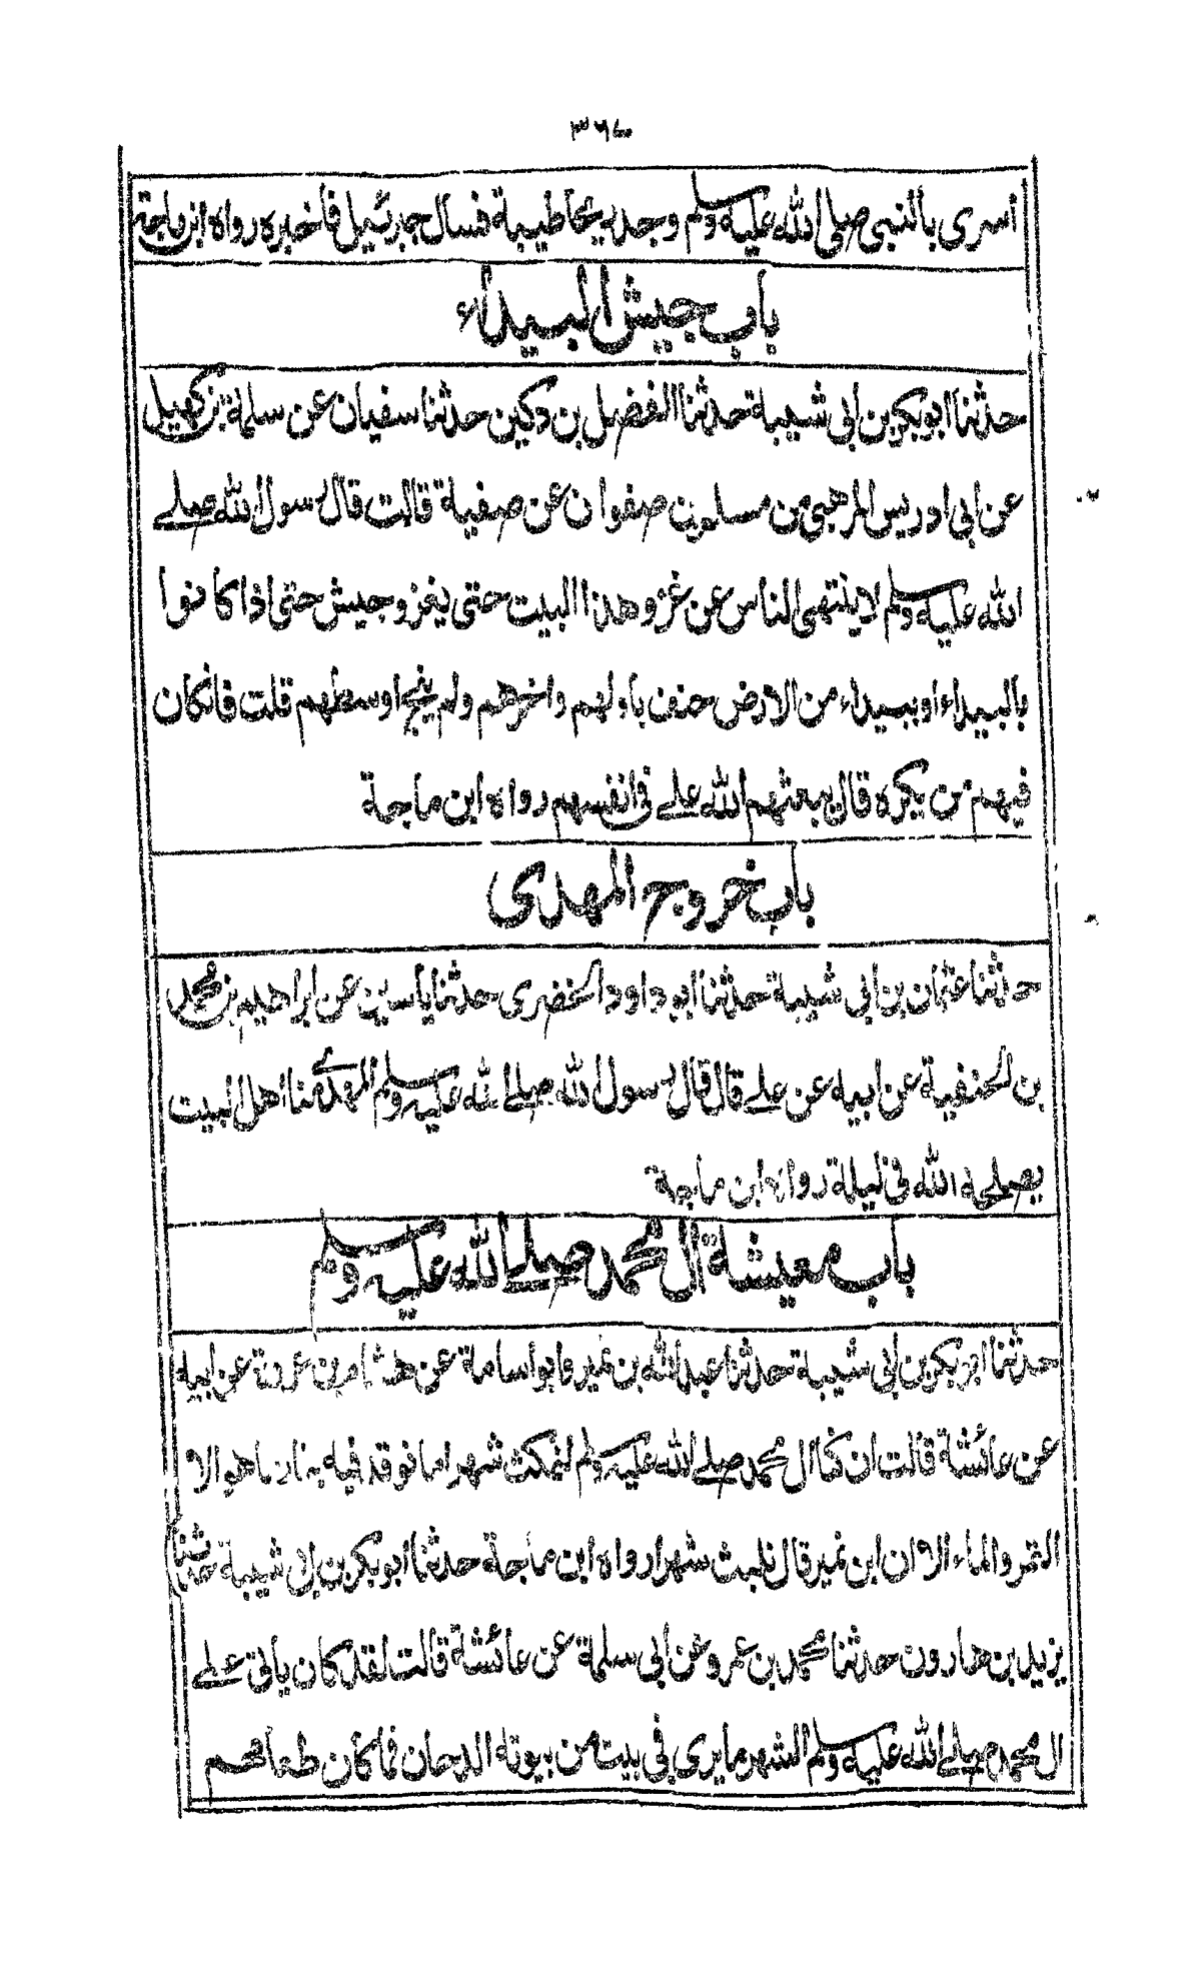 ٣٦٧
أسرى بالنبي صلى الله عليه وسلم وجد ريحا طيبة فسأل جبرئيل فأخبره رواه ابن ماجة
باب جيش البيداء
حدثنا ابو بكر بن ابي شيبة حدثنا الفضل بن دكين حدثنا سفيان عن سلمة بن كهيل
عن ابي ادريس المرهبي من مسلم بن صفوان عن صفية قالت قال رسول الله صلے
الله عليه وسلم لا ينتهى الناس عن غزو هذا البيت حتى يغزو جيش حتى اذا كانوا
بالبيداء او ببيداء من الارض خسف باولهم واخرهم ولم ينج اوسطهم قلت فان كان
فيهم من يكره قال يبعثهم الله علے ما فى انفسهم رواه ابن ماجة
باب خروج المهدى
حدثنا عثمان بن ابي شيبة حدثنا ابو داود الحضرى حدثنا ياسين عن ابراهيم بن محمد
بن الحنفية عن ابيه عن علے قال قال رسول الله صلے الله عليه وسلم المهدے منا اهل البيت
يصلحه الله فى ليلة رواه ابن ماجة
باب معيشة ال محمد صلے الله عليه وسلم
حدثنا ابو بكر بن ابي شيبة حدثنا عبد الله بن نمير وابو اسامة عن هشام بن عروة عن ابيه
عن عائشة قالت ان كنا ال محمد صلے الله عليه وسلم لنمكث شهرا ما نوقد فيه بنار ما هو الا
التمر والماء الا ان ابن نمير قال نلبث شهرا رواه ابن ماجة حدثنا ابو بكر بن ابي شيبة حدثنا
يزيد بن هارون حدثنا محمد بن عمرو عن ابي سلمة عن عائشة قالت لقد كان ياتى علے
ال محمد صلے الله عليه وسلم الشهر ما يرى فى بيت من بيوته الدخان فما كان طعامهم